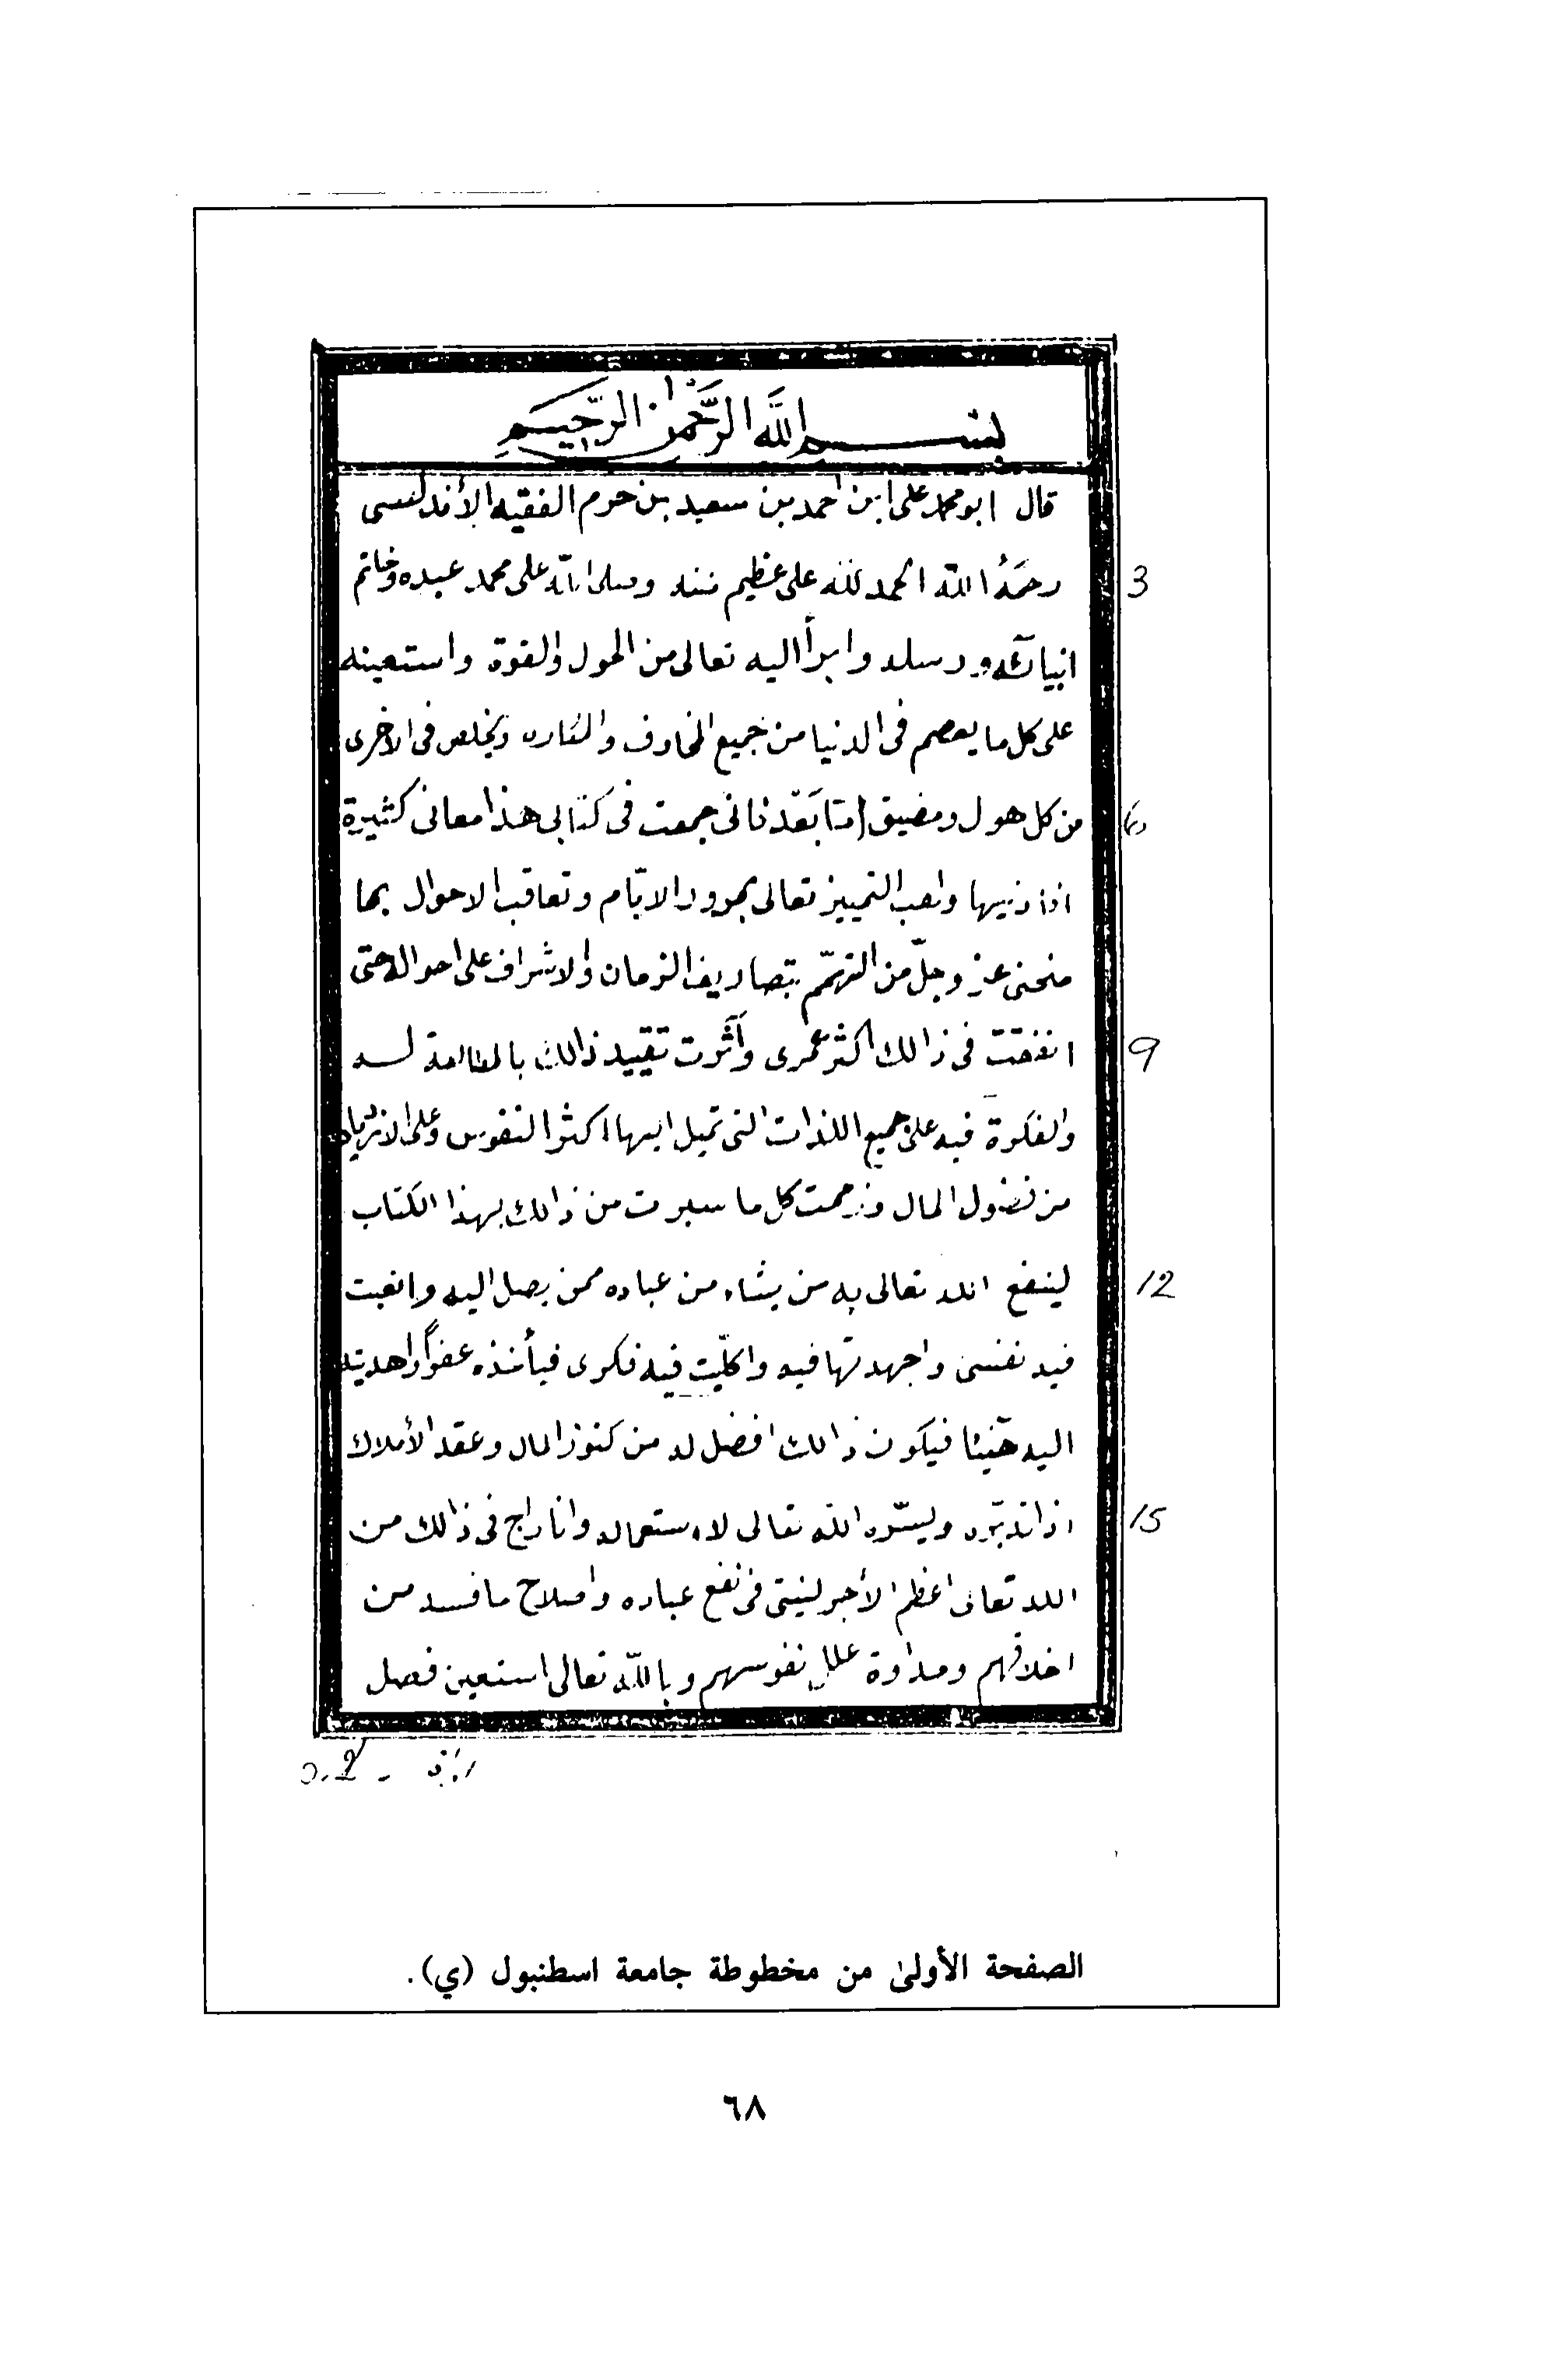 بسم الله الرحمن الرحيم
قال ابو محمد على ابن احمد بن سعيد بن حزم الفقيه الأندلسى
3
رحمَهُ الله الحمد لله على عظيم مننه وصلى الله على محمد عبده وخاتم
انبيائه ورسله وابرأ اليه تعالى من الحول والقوة واستعينه
على كل ما يعصم فى الدنيا من جميع المخاوف والمكاره ويخلص فى الاخرى
6
من كل هول ومضيق امّا بَعْد فانى جمعت فى كتابى هذا معانى كثيرة
افادنيها واهب التمييز تعالى بمرور الايّام وتعاقب الاحوال بما
منحنى عز وجلّ من التهمّم بتصاريف الزمان والاشراف على احواله حتى
9
انفقت فى ذالك اكثر عمرى وآثرت تقييد ذالك بالمطالعة له
والفكرة فيه على جميع اللذات التى تميل اليها اكثر النفوس وعلى الازدياد
من فضول المال وزممت كل ما سبرت من ذالك بهذا الكتاب
12
لينفع الله تعالى به من يشاء من عباده ممن يصل اليه واتعبت
فيه نفسى واجهدتها فيه واكلّيت فيه فكرى فيأخذه عفواً واهديته
اليه هنيئا فيكون ذالك افضل له من كنوز المال وعقد الأملاك
15
اذا تدبّره ويسّره الله تعالى لاستعماله وانا راج فى ذالك من
الله تعالى اعظم الأجر لنيتى فى نفع عباده واصلاح ما فسد من
اخلاقهم ومداوة علل نفوسهم وبالله تعالى استعين فصل
الصفحة الأولىٰ من مخطوطة جامعة اسطنبول (ي).
٦٨